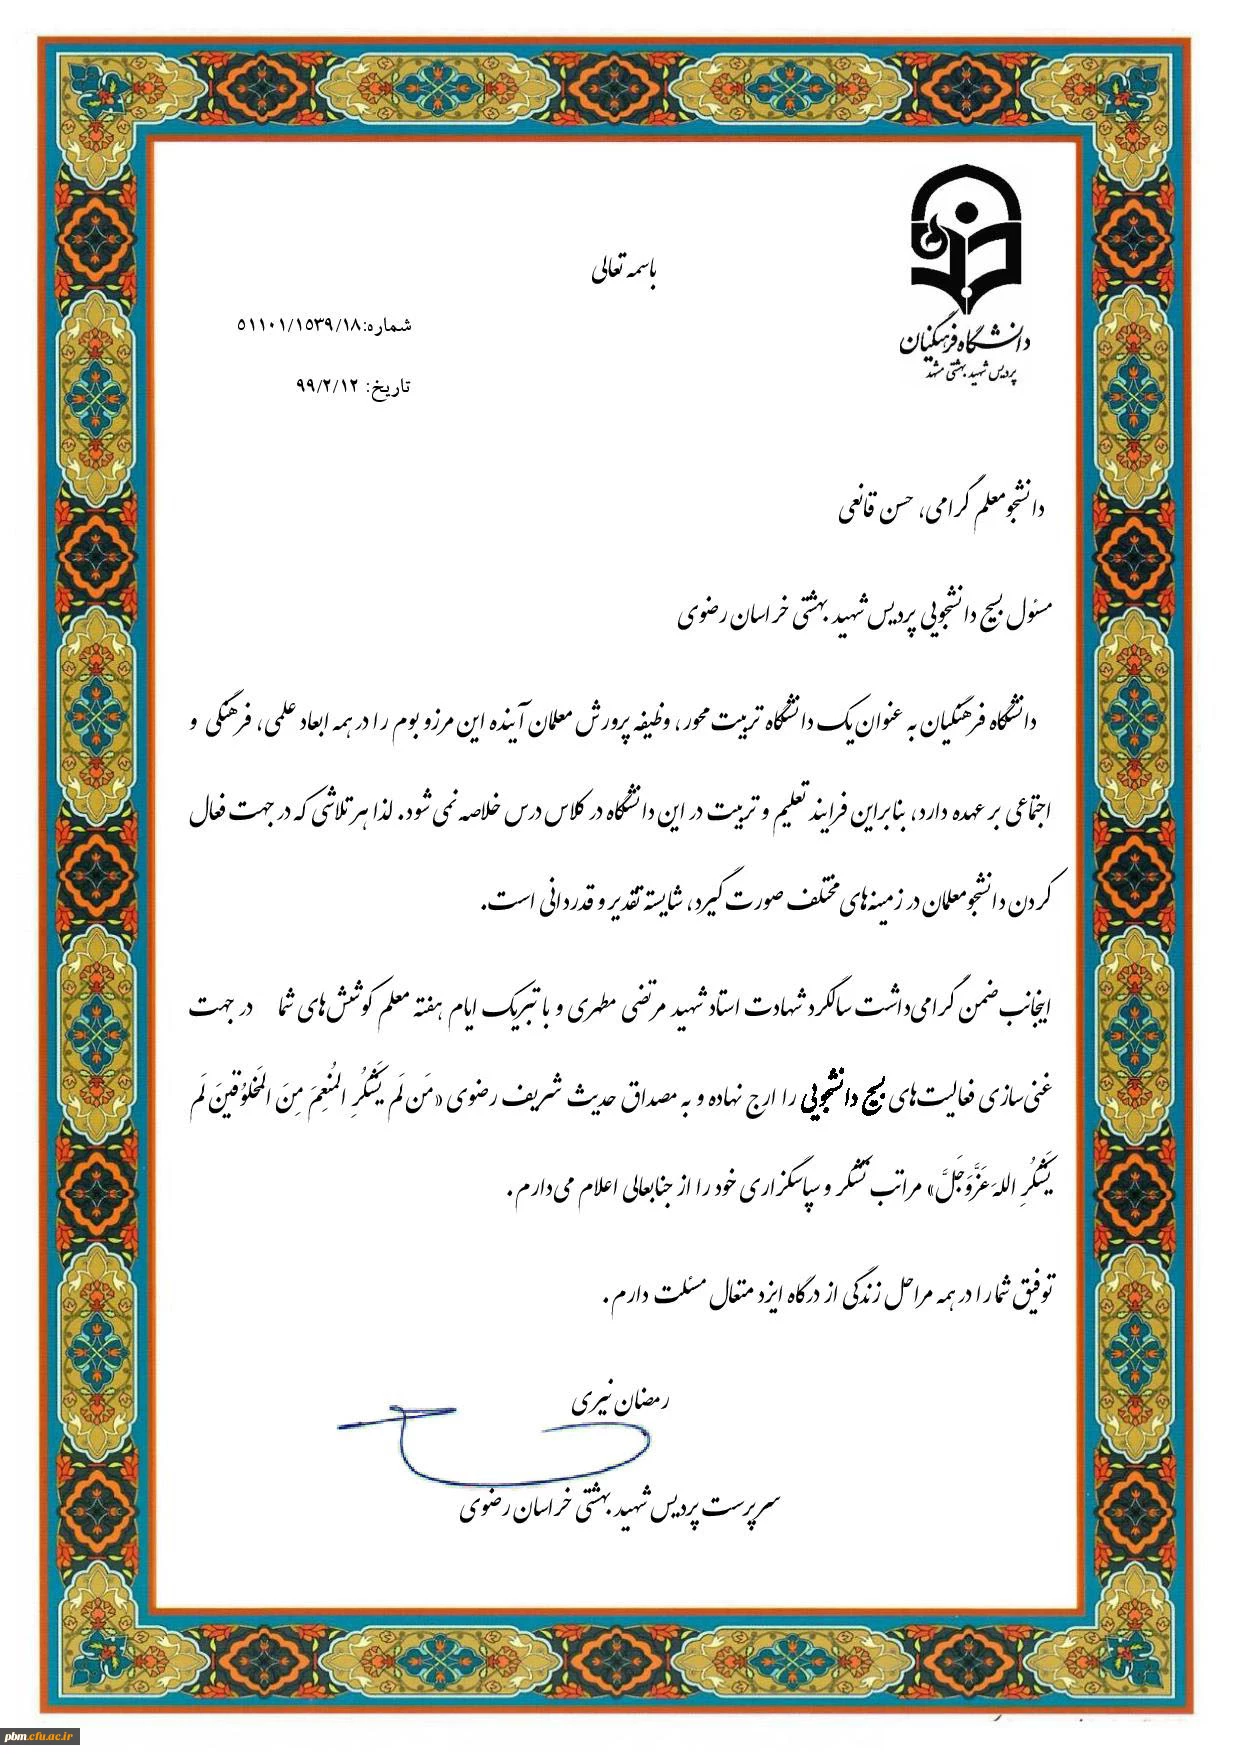 باسمه تعالی
دانشگاه فرهنگیان
پردیس شهید بهشتی مشهد
شماره:۵۱۱۰۱/۱۵۳۹/۱۸
تاریخ: ۹۹/۲/۱۲
دانشجومعلم گرامی، حسن قانعی
مسئول بسیج دانشجویی پردیس شهید بهشتی خراسان رضوی
دانشگاه فرهنگیان به عنوان یک دانشگاه تربیت محور، وظیفه پرورش معلمان آینده این مرزوبوم را در همه ابعاد علمی، فرهنگی و
اجتماعی بر عهده دارد، بنابراین فرایند تعلیم و تربیت در این دانشگاه در کلاس درس خلاصه نمی‌شود. لذا هر تلاشی که در جهت فعال
کردن دانشجومعلمان در زمینه‌های مختلف صورت گیرد، شایسته تقدیر و قدردانی است.
اینجانب ضمن گرامی‌داشت سالگرد شهادت استاد شهید مرتضی مطهری و با تبریک ایام هفته معلم کوشش‌های شما در جهت
غنی‌سازی فعالیت‌های بسیج دانشجویی را ارج نهاده و به مصداق حدیث شریف رضوی «مَن لَم یَشکُرِ المُنعِمَ مِنَ المَخلوُقینَ لَم
یَشکُرِ اللهَ عَزَّوَجَلَّ» مراتب تشکر و سپاسگزاری خود را از جنابعالی اعلام می‌دارم.
توفیق شما را در همه مراحل زندگی از درگاه ایزد متعال مسئلت دارم.
رمضان نیری
سرپرست پردیس شهید بهشتی خراسان رضوی
pbm.cfu.ac.ir